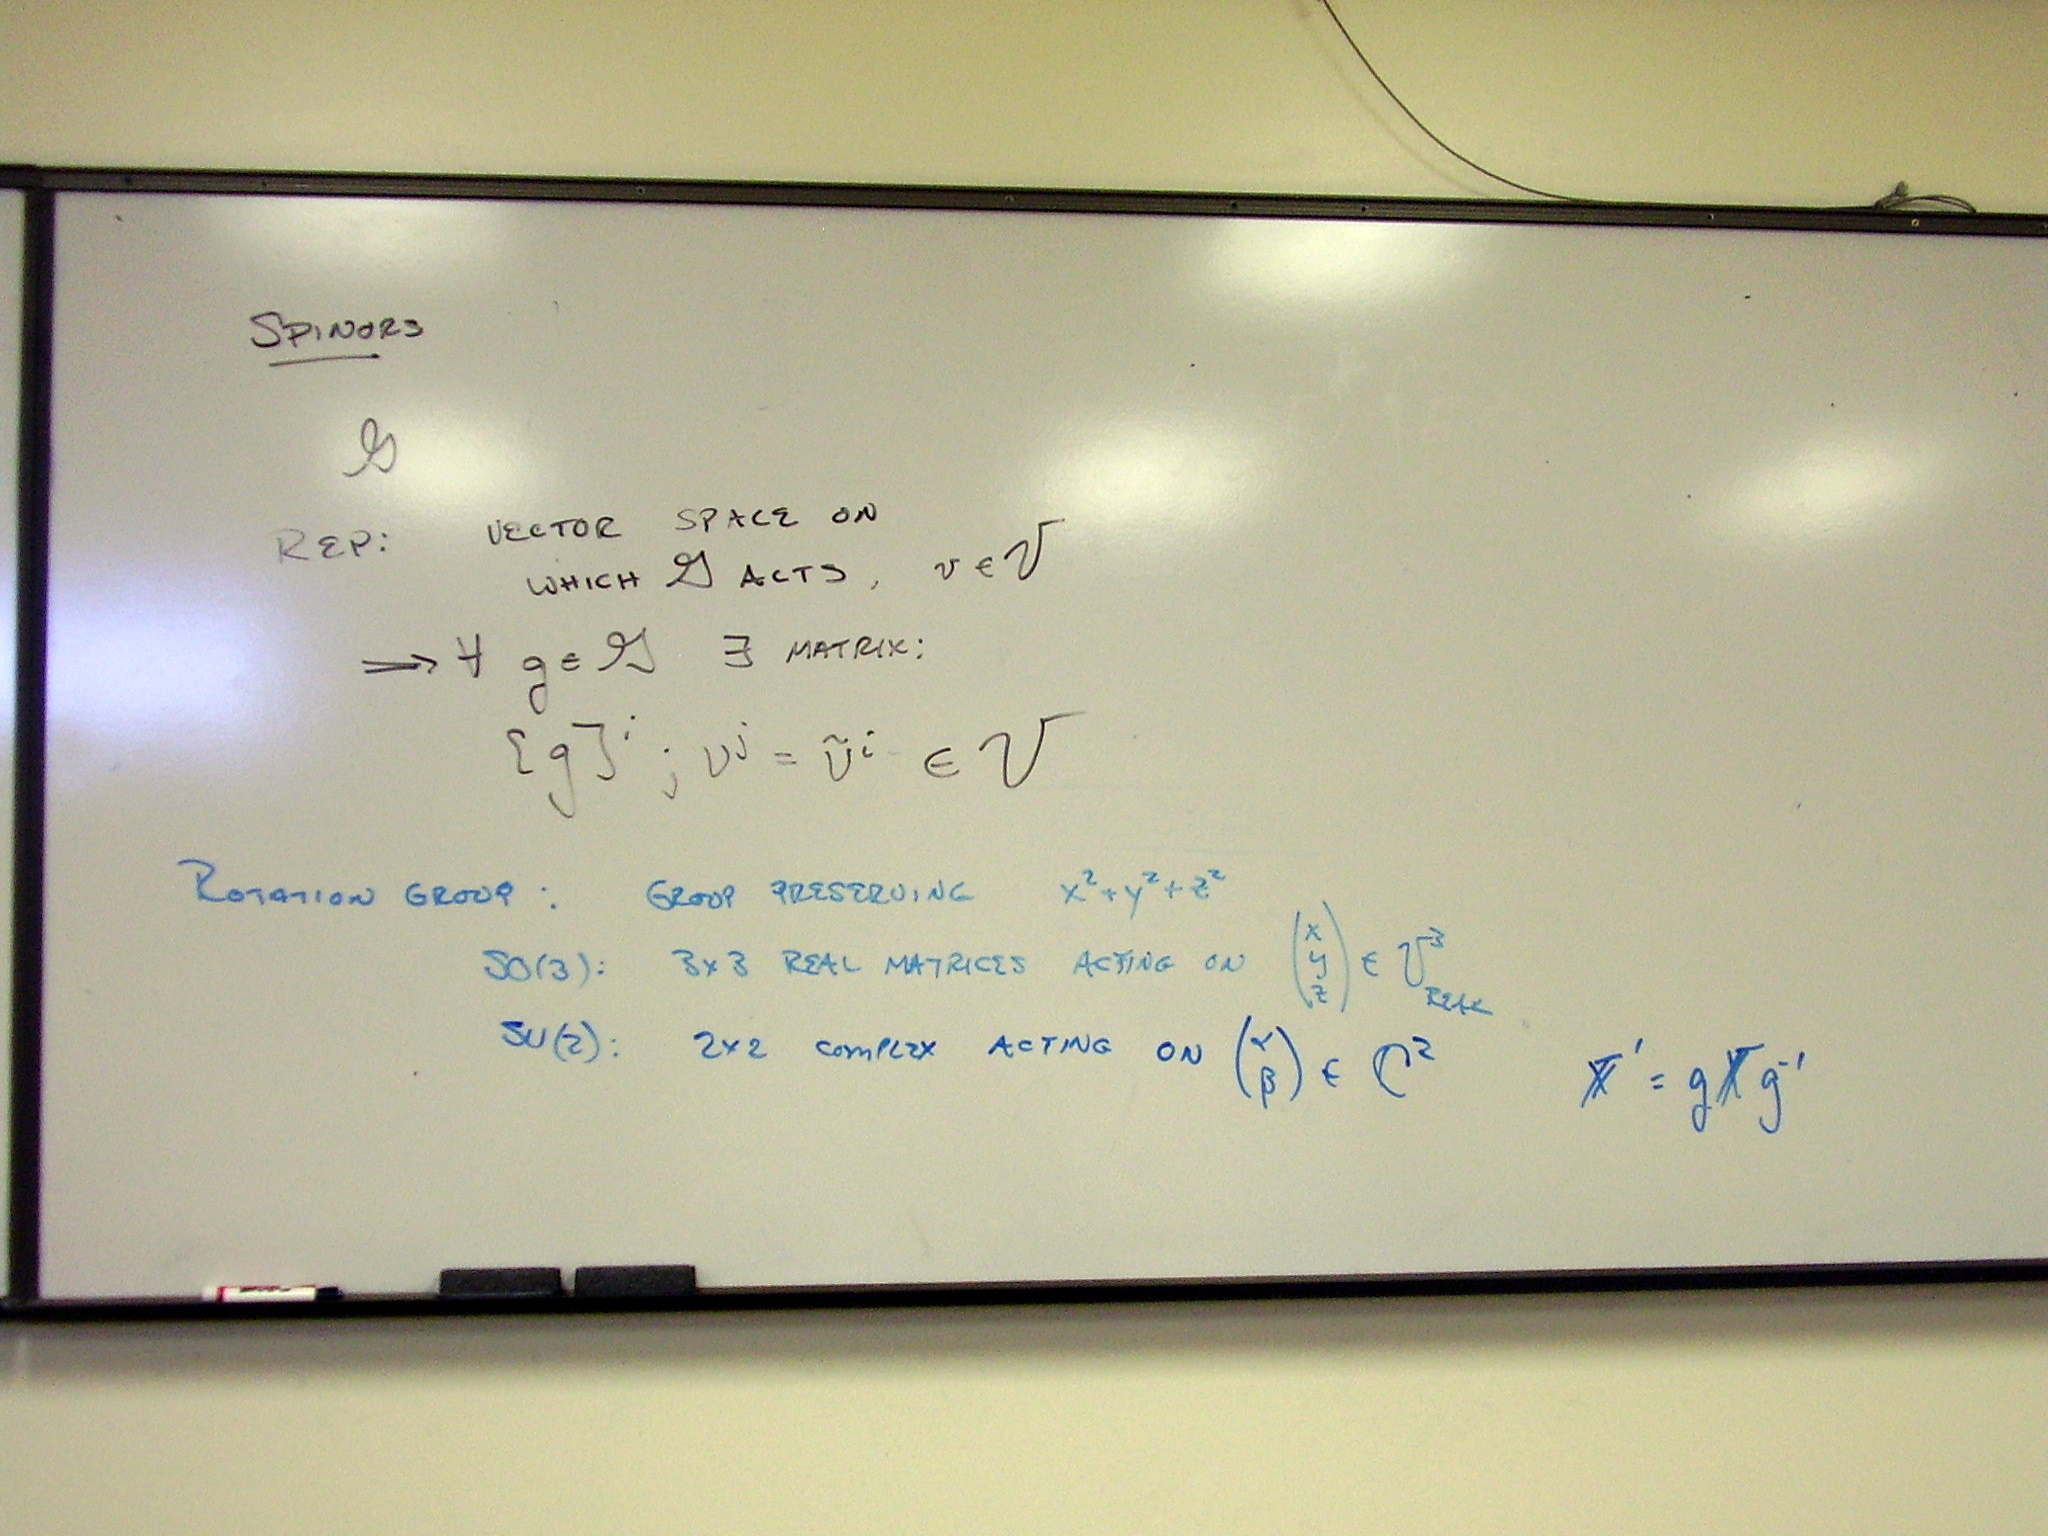 SPINORS
𝒢
REP: VECTOR SPACE ON
WHICH 𝒢 ACTS, v ∈ V
⟹ ∀ g ∈ 𝒢 ∃ MATRIX:
[g]ⁱⱼ vʲ = ṽⁱ ∈ V
ROTATION GROUP: GROUP PRESERVING x²+y²+z²
SO(3): 3x3 REAL MATRICES ACTING ON (x y z) ∈ V³ REAL
SU(2): 2x2 COMPLEX ACTING ON (α β) ∈ C² X' = gXg⁻¹